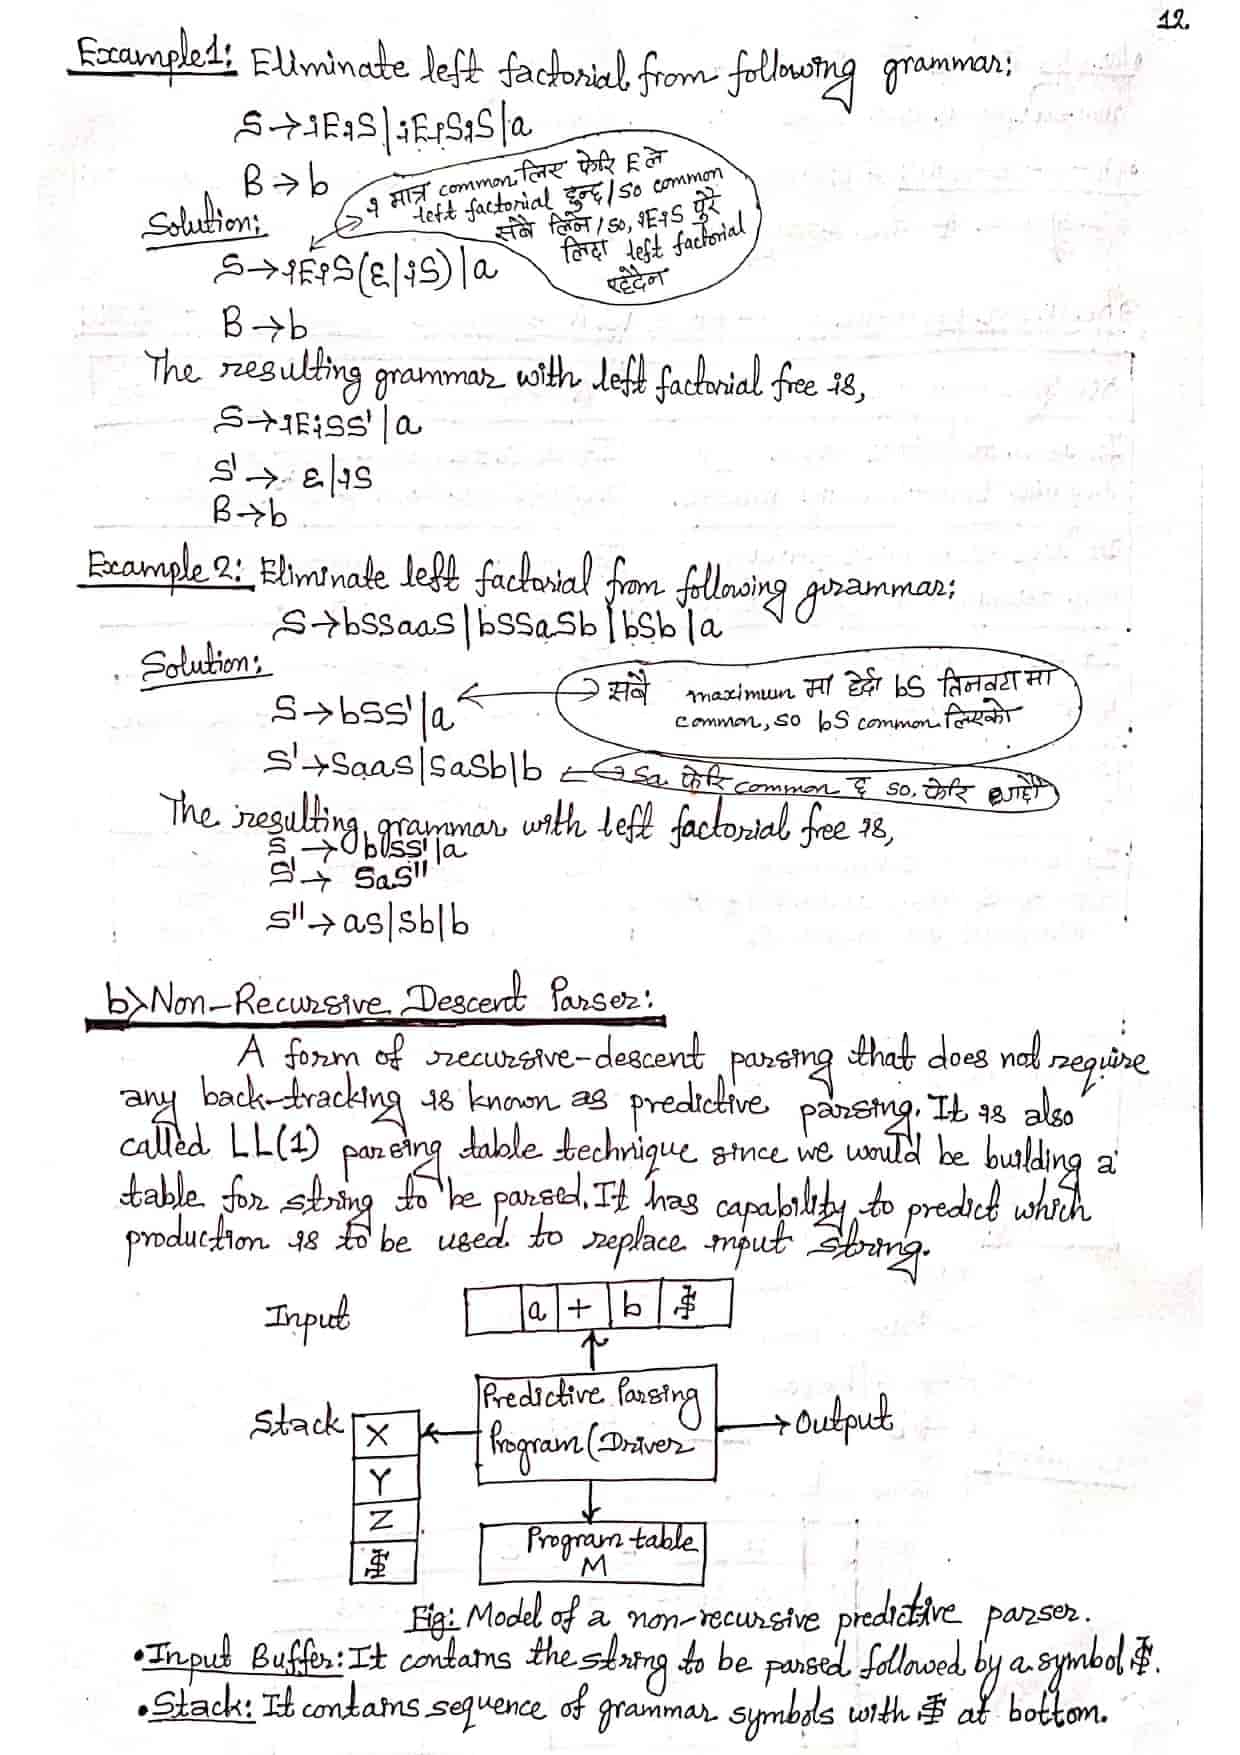 12.
Example1: Eliminate left factorial from following grammar:
S→iEiS|iEiSiS|a
B→b
→ i मात्र common लिए फेरि E ले
left factorial हुन्छ/so common
सबै लिने/so, iEiS पुरै
लिदा left factorial
रहदैन
Solution:
S→iEiS(ε|iS)|a
B→b
The resulting grammar with left factorial free is,
S→iEiSS'|a
S'→ ε|iS
B→b
Example 2: Eliminate left factorial from following grammar:
S→bSSaaS|bSSaSb|bSb|a
Solution:
S→bSS'|a
→ सबै maximum मा हेर्दा bS तिनवटा मा
common, so bS common लिएको
S'→SaaS|SaSb|b
→ Sa फेरि common छ so. फेरि गर्दा
The resulting grammar with left factorial free is,
S → bSS'|a
S'→ SaS"
S"→aS|Sb|b
b) Non-Recursive Descent Parser:
A form of recursive-descent parsing that does not require
any back-tracking is known as predictive parsing. It is also
called LL(1) parsing table technique since we would be building a
table for string to be parsed. It has capability to predict which
production is to be used to replace input string.
Input
a + b $
Stack
X
Y
Z
$
Predictive Parsing
Program (Driver
→Output
Program table
M
Fig: Model of a non-recursive predictive parser.
•Input Buffer: It contains the string to be parsed followed by a symbol $.
•Stack: It contains sequence of grammar symbols with $ at bottom.